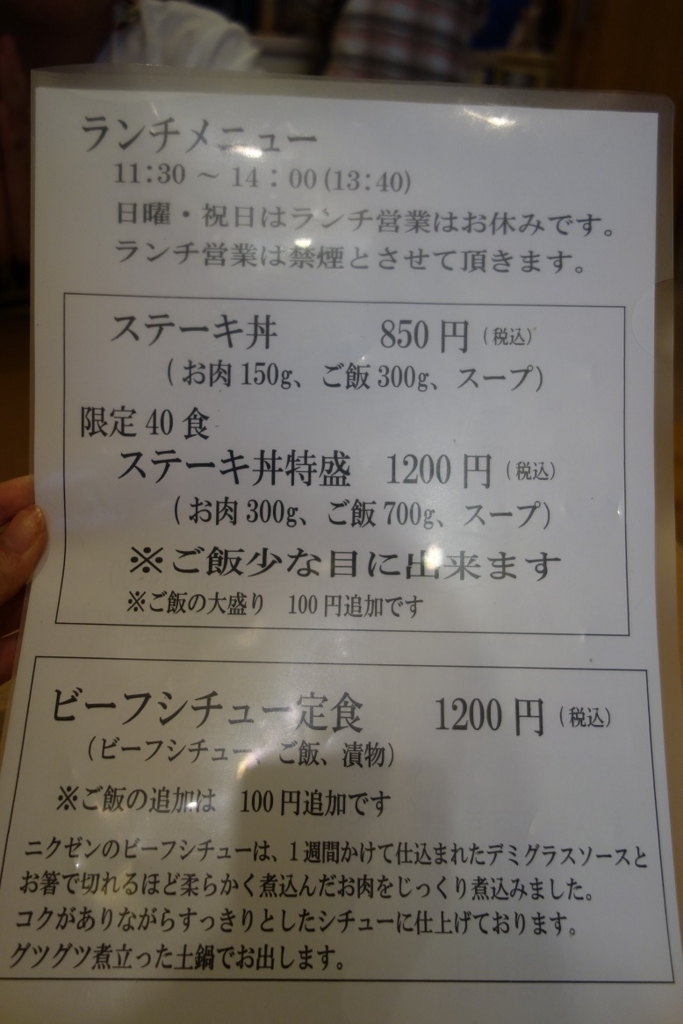 ランチメニュー
11:30 ～ 14：00 (13:40)
日曜・祝日はランチ営業はお休みです。
ランチ営業は禁煙とさせて頂きます。
ステーキ丼 850 円 (税込)
(お肉 150g、ご飯 300g、スープ)
限定 40 食
ステーキ丼特盛 1200 円 (税込)
(お肉 300g、ご飯 700g、スープ)
※ご飯少な目に出来ます
※ご飯の大盛り 100 円追加です
ビーフシチュー定食 1200 円 (税込)
(ビーフシチュー、ご飯、漬物)
※ご飯の追加は 100 円追加です
ニクゼンのビーフシチューは、1 週間かけて仕込まれたデミグラスソースと
お箸で切れるほど柔らかく煮込んだお肉をじっくり煮込みました。
コクがありながらすっきりとしたシチューに仕上げております。
グツグツ煮立った土鍋でお出します。